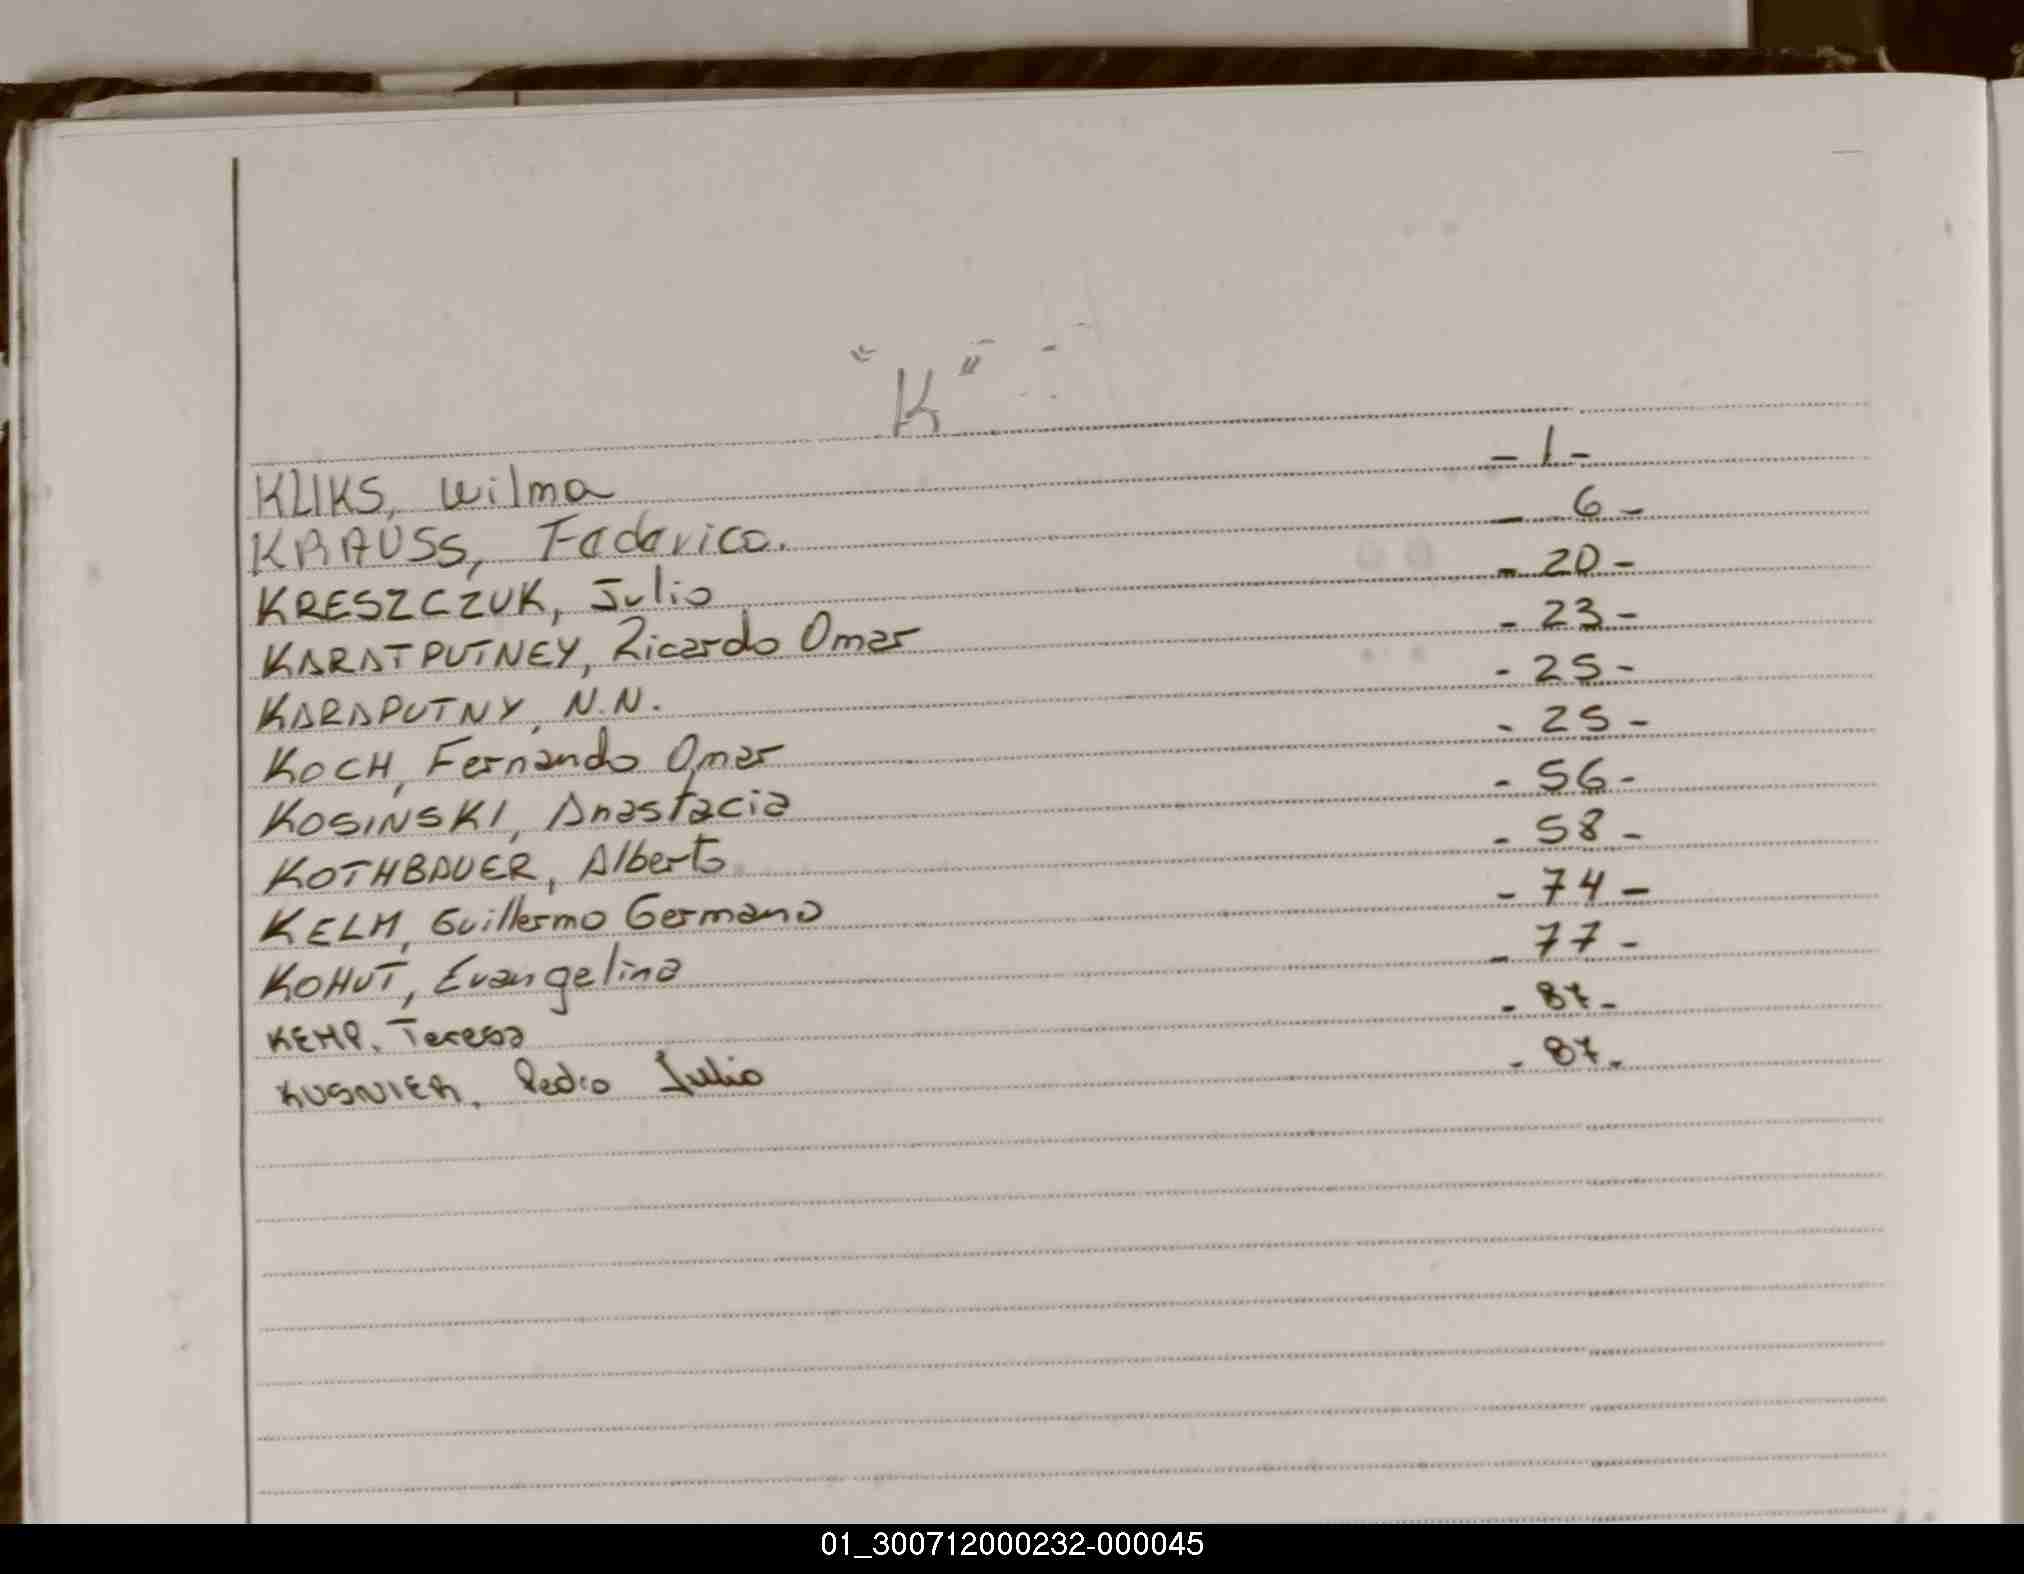 "K" -
KLIKS, Wilma - 1 -
KRAUSS, Federico. - 6 -
KRESZCZUK, Julio - 20 -
KARATPUTNEY, Ricardo Omar - 23 -
KARAPUTNY, N.N. - 25 -
KOCH, Fernando Omar - 25 -
KOSINSKI, Anastacia - 56 -
KOTHBAUER, Alberto - 58 -
KELM, Guillermo Germano - 74 -
KOHUT, Evangelina - 77 -
KEMP. Teresa - 87 -
KUSNIER. Pedro Julio - 87 -
01_300712000232-000045